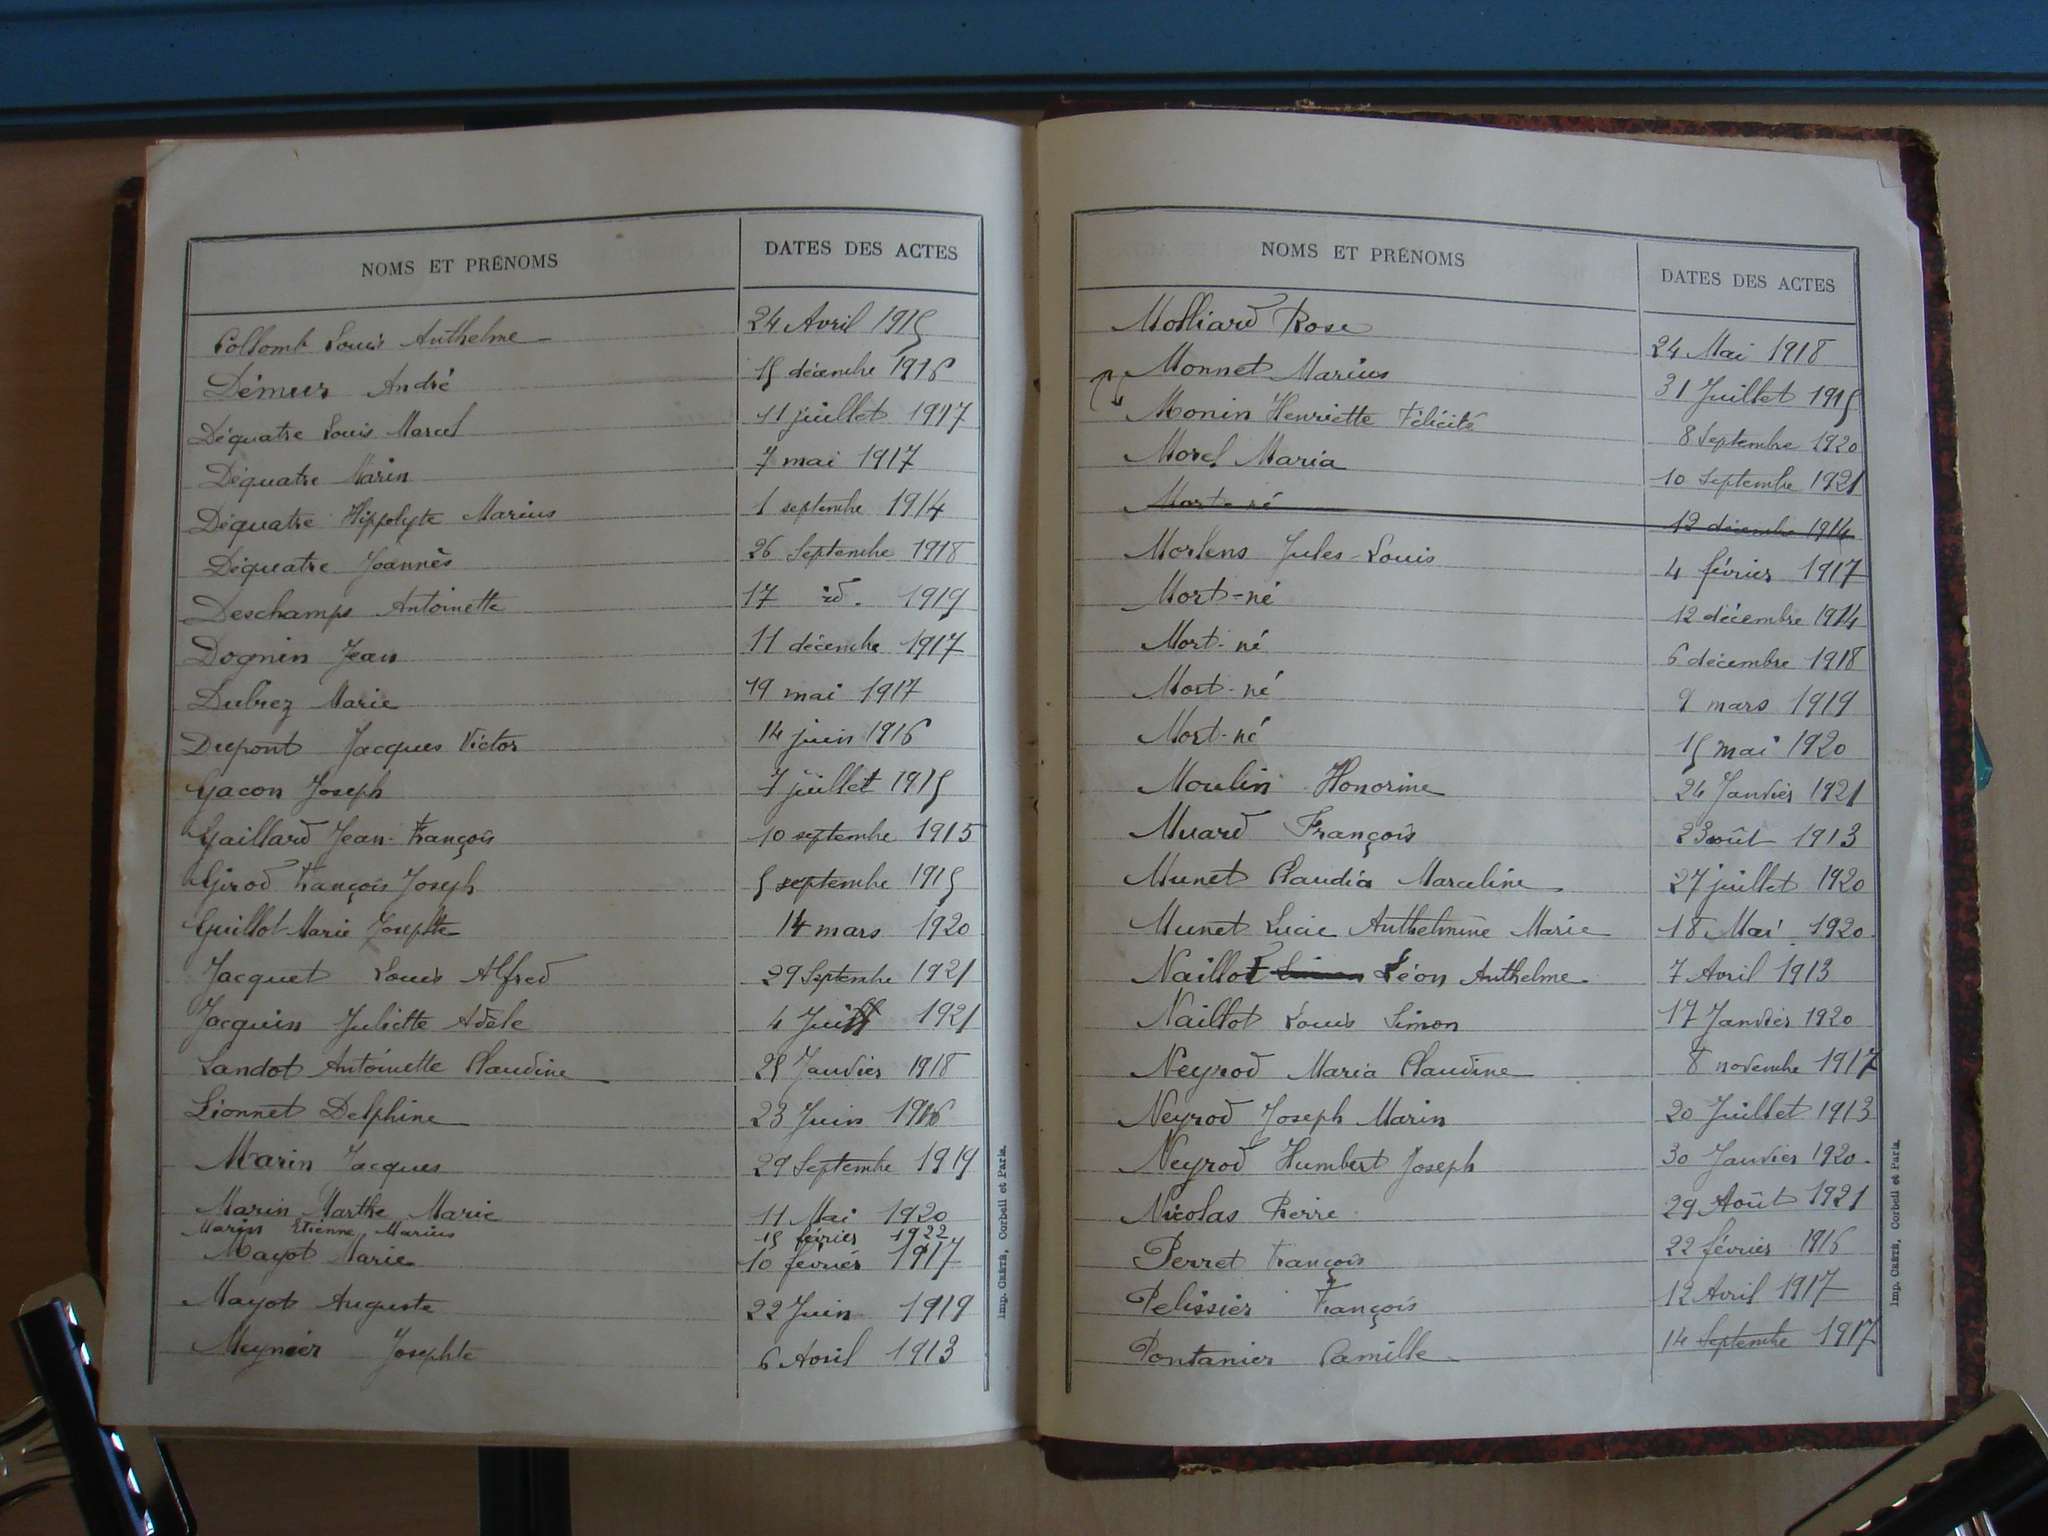 NOMS ET PRÉNOMS DATES DES ACTES
Collomb Louis Anthelme 24 Avril 1915
Démur André 15 décembre 1916
Déquatre Louis Marcel 11 juillet 1917
Déquatre Marin 7 mai 1917
Déquatre Hippolyte Marius 1 septembre 1914
Déquatre Joannès 26 Septembre 1918
Deschamps Antoinette 17 id. 1919
Dognin Jean 11 décembre 1917
Dubrez Marie 19 mai 1917
Dupont Jacques Victor 14 juin 1916
Gacon Joseph 7 juillet 1915
Gaillard Jean-François 10 septembre 1915
Girod François Joseph 5 septembre 1915
Guillot Marie Josephte 14 mars 1920
Jacquet Louis Alfred 29 Septembre 1921
Jacquin Juliette Adèle 4 1921
Landot Antoinette Claudine 25 Janvier 1918
Lionnet Delphine 23 Juin 1916
Marin Jacques 29 Septembre 1919
Marin Marthe Marie 11 Mai 1920
Marin Etienne Marius 15 février 1922
Mayot Marie 10 février 1917
Mayot Auguste 22 Juin 1919
Meynier Josephte 6 Avril 1913
Imp. CRÉTÉ, Corbeil et Paris.
NOMS ET PRÉNOMS DATES DES ACTES
Molliard Rose 24 Mai 1918
Monnet Marius 31 Juillet 1915
Monin Henriette Félicité 8 Septembre 1920
Morel Maria 10 Septembre 1921
Mort-né 12 décembre 1914
Morlens Jules-Louis 4 février 1917
Mort-né 12 décembre 1914
Mort-né 6 décembre 1918
Mort-né 9 mars 1919
Mort-né 15 mai 1920
Moulin Honorine 24 Janvier 1921
Muard François 23 août 1913
Munet Claudia Marceline 27 juillet 1920
Munet Lucie Anthelmine Marie 18 Mai 1920
Naillot Léon Anthelme 7 Avril 1913
Naillot Louis Simon 17 Janvier 1920
Neyrod Maria Claudine 8 novembre 1917
Neyrod Joseph Marin 20 Juillet 1913
Neyrod Humbert Joseph 30 Janvier 1920
Nicolas Pierre 29 Août 1921
Perret François 22 février 1916
Pelissier François 12 Avril 1917
Pontanier Camille 14 Septembre 1917
Imp. CRÉTÉ, Corbeil et Paris.